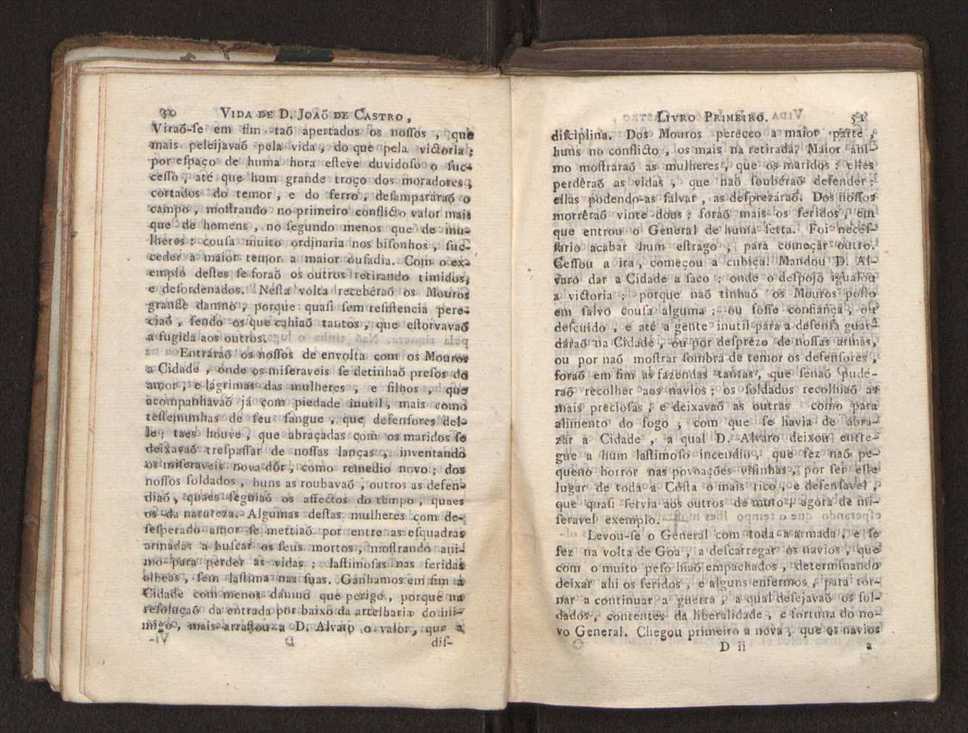 50 VIDA DE D. JOAÕ DE CASTRO,
Viraõ-ſe em fim taõ apertados os noſſos, que
mais peleijavaõ pela vida, do que pela victoria;
por eſpaço de huma hora eſteve duvidoſo o ſuc-
ceſſo, até que hum grande troço dos moradores,
cortados do temor, e do ferro, deſampararaõ o
campo, moſtrando no primeiro conflicto valor mais
que de homens, no ſegundo menos que de mu-
lheres: couſa muito ordinaria nos biſonhos, ſuc-
ceder a maior temor a maior ouſadia. Com o ex-
emplo deſtes ſe foraõ os outros retirando timidos,
e deſordenados. Neſta volta recebêraõ os Mouros
grande damno, porque quaſi ſem reſiſtencia pere-
ciaõ, ſendo os que cahiaõ tantos, que eſtorvavaõ
a fugida aos outros.
Entráraõ os noſſos de envolta com os Mouros
a Cidade, onde os miſeraveis ſe detinhaõ preſos do
amor, e lágrimas das mulheres, e filhos, que
acompanhavaõ já com piedade inutil, mais como
teſtemunhas de ſeu ſangue, que defenſores del-
le; taes houve, que abraçadas com os maridos ſe
deixavaõ treſpaſſar de noſſas lanças, inventando
as miſeraveis nova dôr, como remedio novo; dos
noſſos ſoldados, huns as roubavaõ, outros as defen-
diaõ, quaes ſeguiaõ os affectos do tempo, quaes
os da natureza. Algumas deſtas mulheres com de-
ſeſperado amor ſe mettiaõ por entre as eſquadras
armadas a buſcar os ſeus mortos, moſtrando ani-
mo para perder as vidas; laſtimoſas nas feridas
alheas, ſem laſtima nas ſuas. Ganhamos em fim a
Cidade com menos damno que perigo, porque na
reſoluçaõ da entrada por baixo da artelharia do ini-
migo, mais arraſtou a D. Alvaro o valor, que a
D
diſ-
LIVRO PRIMEIRO. 51
diſciplina. Dos Mouros pereceo a maior parte,
huns no conflicto, os mais na retirada. Maior ani-
mo moſtraraõ as mulheres, que os maridos: elles
perdêraõ as vidas, que naõ ſoubéraõ defender;
ellas podendo-as ſalvar, as deſprezáraõ. Dos noſſos
morrêraõ vinte dous; foraõ mais os feridos, em
que entrou o General de huma ſetta. Foi neceſ-
ſario acabar hum eſtrago, para começar outro.
Ceſſou a ira, começou a cubiça. Mandou D. Al-
varo dar a Cidade a ſaco; onde o deſpojo igualou
a victoria; porque naõ tinhaõ os Mouros poſto
em ſalvo couſa alguma; ou foſſe confiança, ou
deſcuido, e até a gente inutil para a defenſa guar-
dáraõ na Cidade, ou por deſprezo de noſſas armas,
ou por naõ moſtrar ſombra de temor os defenſores,
foraõ em fim as fazendas tantas, que ſenaõ pude-
raõ recolher aos navios; os ſoldados recolhiaõ as
mais precioſas, e deixavaõ as outras como para
alimento do fogo, com que ſe havia de abra-
zar a Cidade, a qual D. Alvaro deixou entre-
gue a hum laſtimoſo incendio, que fez naõ pe-
queno horror nas povoações viſinhas, por ſer eſte
lugar de toda a Coſta o mais rico, e defenſavel,
que quaſi ſervia aos outros de muro, agora de mi-
ſeravel exemplo.
Levou-ſe o General com toda a armada, e ſe
fez na volta de Goa, a deſcarregar os navios, que
com o muito peſo hiaõ empachados, determinando
deixar ahi os feridos, e alguns enfermos, para tor-
nar a continuar a guerra, a qual deſejavaõ os ſol-
dados, contentes da liberalidade, e fortuna do no-
vo General. Chegou primeiro a nova, que os navios
D ii
a